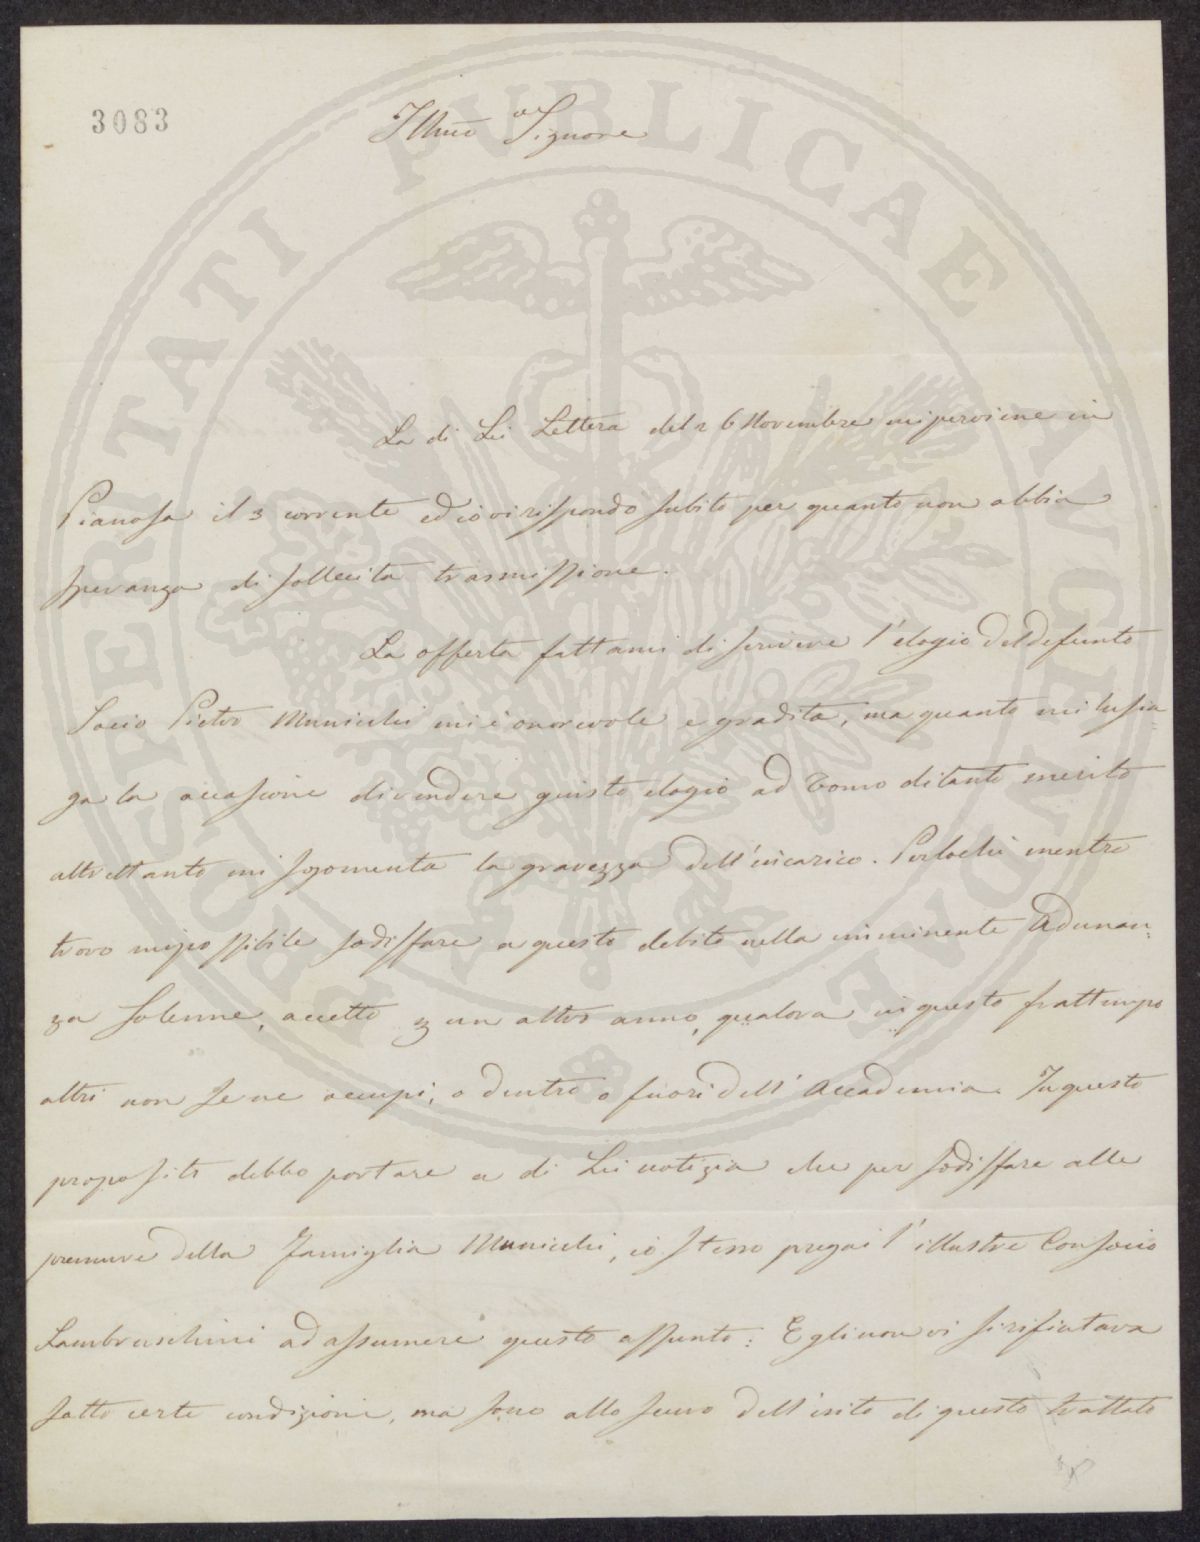 3083
Illmo Signore
La di Lei Lettera del 26 Novembre mi perviene in
Pianosa il 3 corrente ed io vi rispondo subito per quanto non abbia
speranza di sollecita trasmissione.
La offerta fattami di scrivere l'elogio del defunto
Socio Pietro Municchi mi è onorevole e gradita, ma quanto mi lusin
ga la occasione di rendere giusto elogio ad Uomo di tanto merito
altrettanto mi sgomenta la gravezza dell'incarico. Perlochè mentre
trovo impossibile sodisfare a questo debito nella imminente Adunan=
za Solenne, accetto un altro anno, qualora in questo frattempo
altri non se ne occupi, o dentro o fuori dell'Accademia. In questo
proposito debbo portare a di Lei notizia che per sodisfare alle
premure della Famiglia Municchi, io stesso pregai l'illustre Consocio
Lambruschini ad assumere questo assunto: Egli non vi si rifiutava
sotto certe condizioni, ma sono allo scuro dell'esito di questo trattato
PROSPERITATI PUBLICAE AUGENDAE